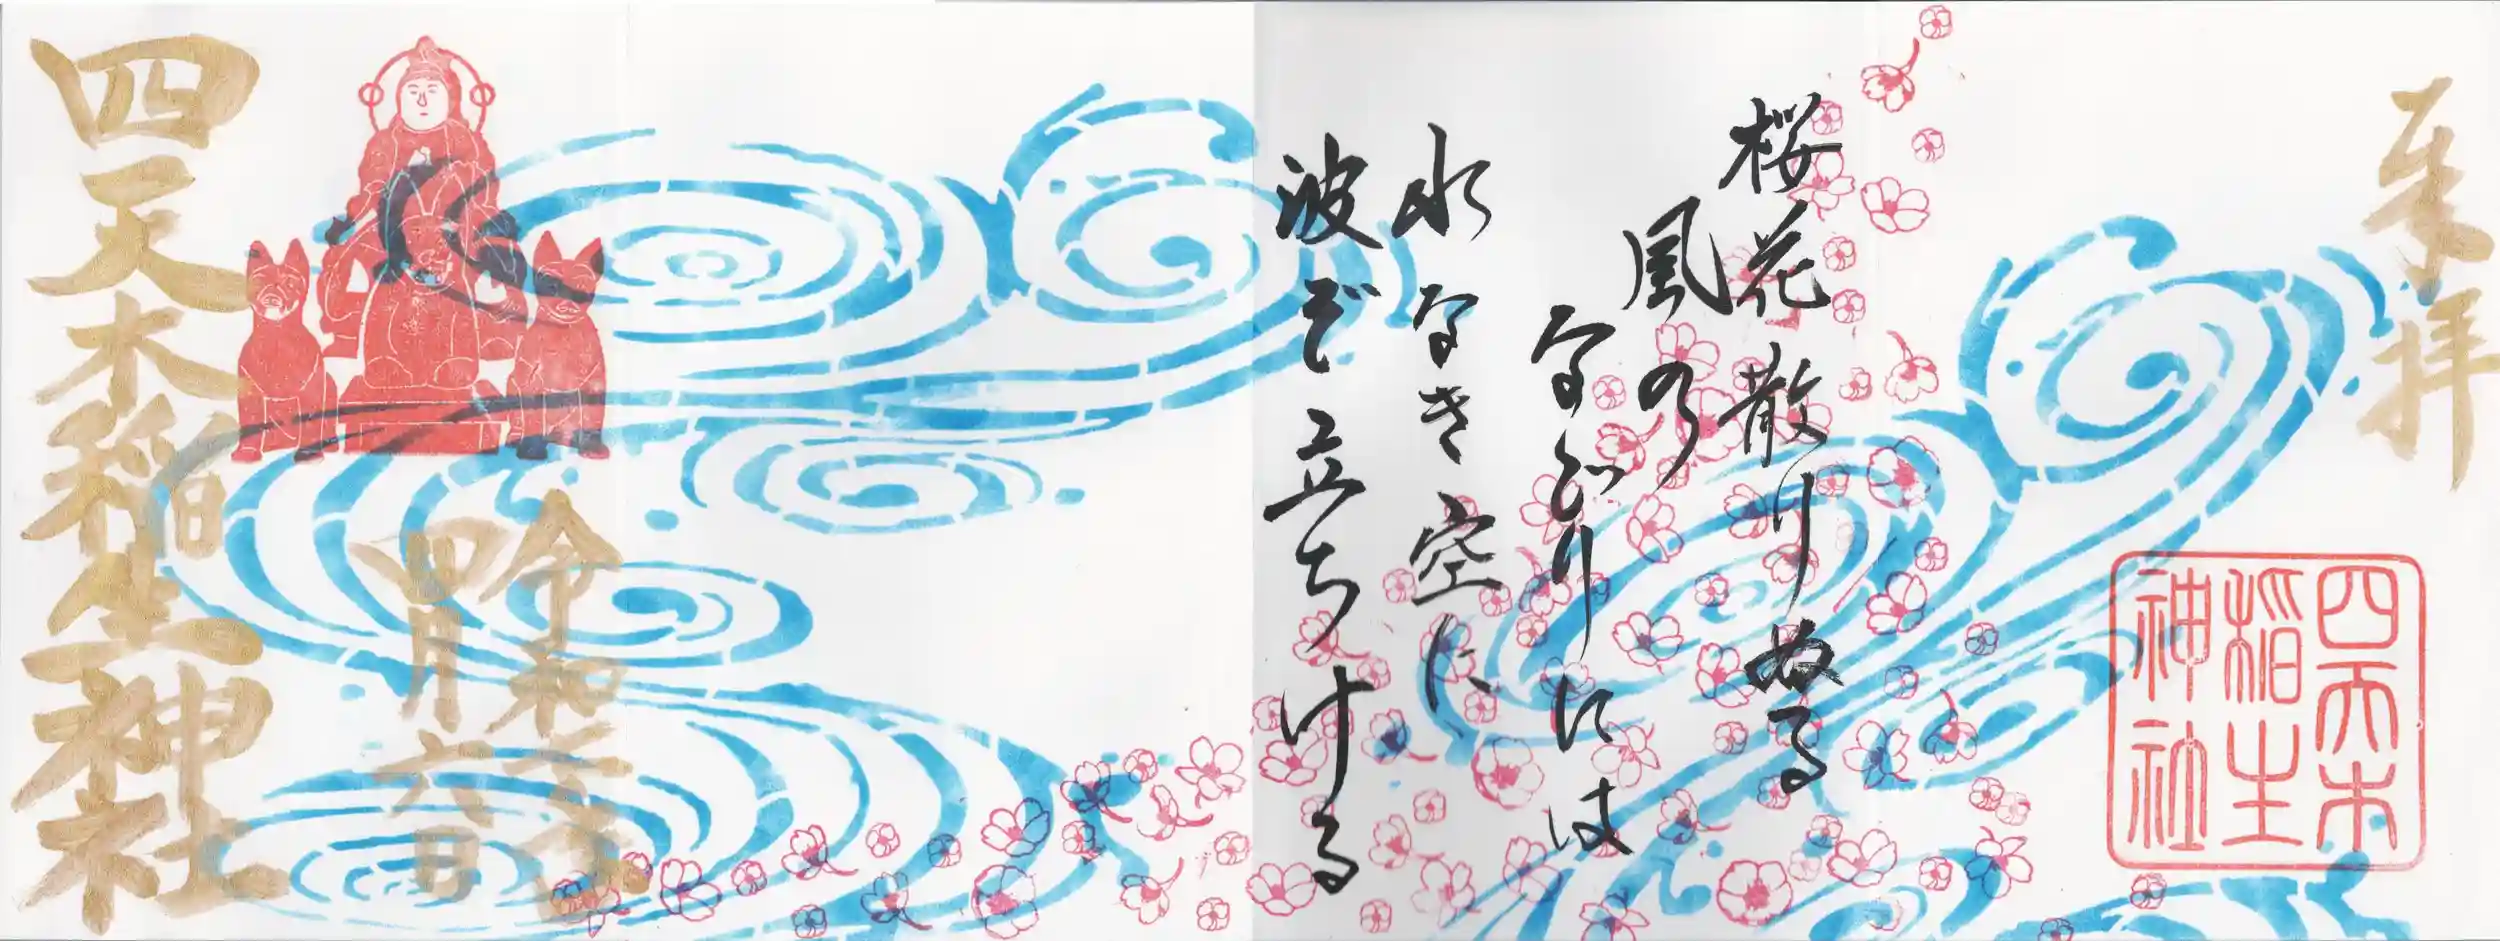 奉拝
四天木
稲生
神社
桜花散りぬる
風の
なごりには
水なき空に
波ぞ立ちける
令和 年
四月六日
四天木稲生神社